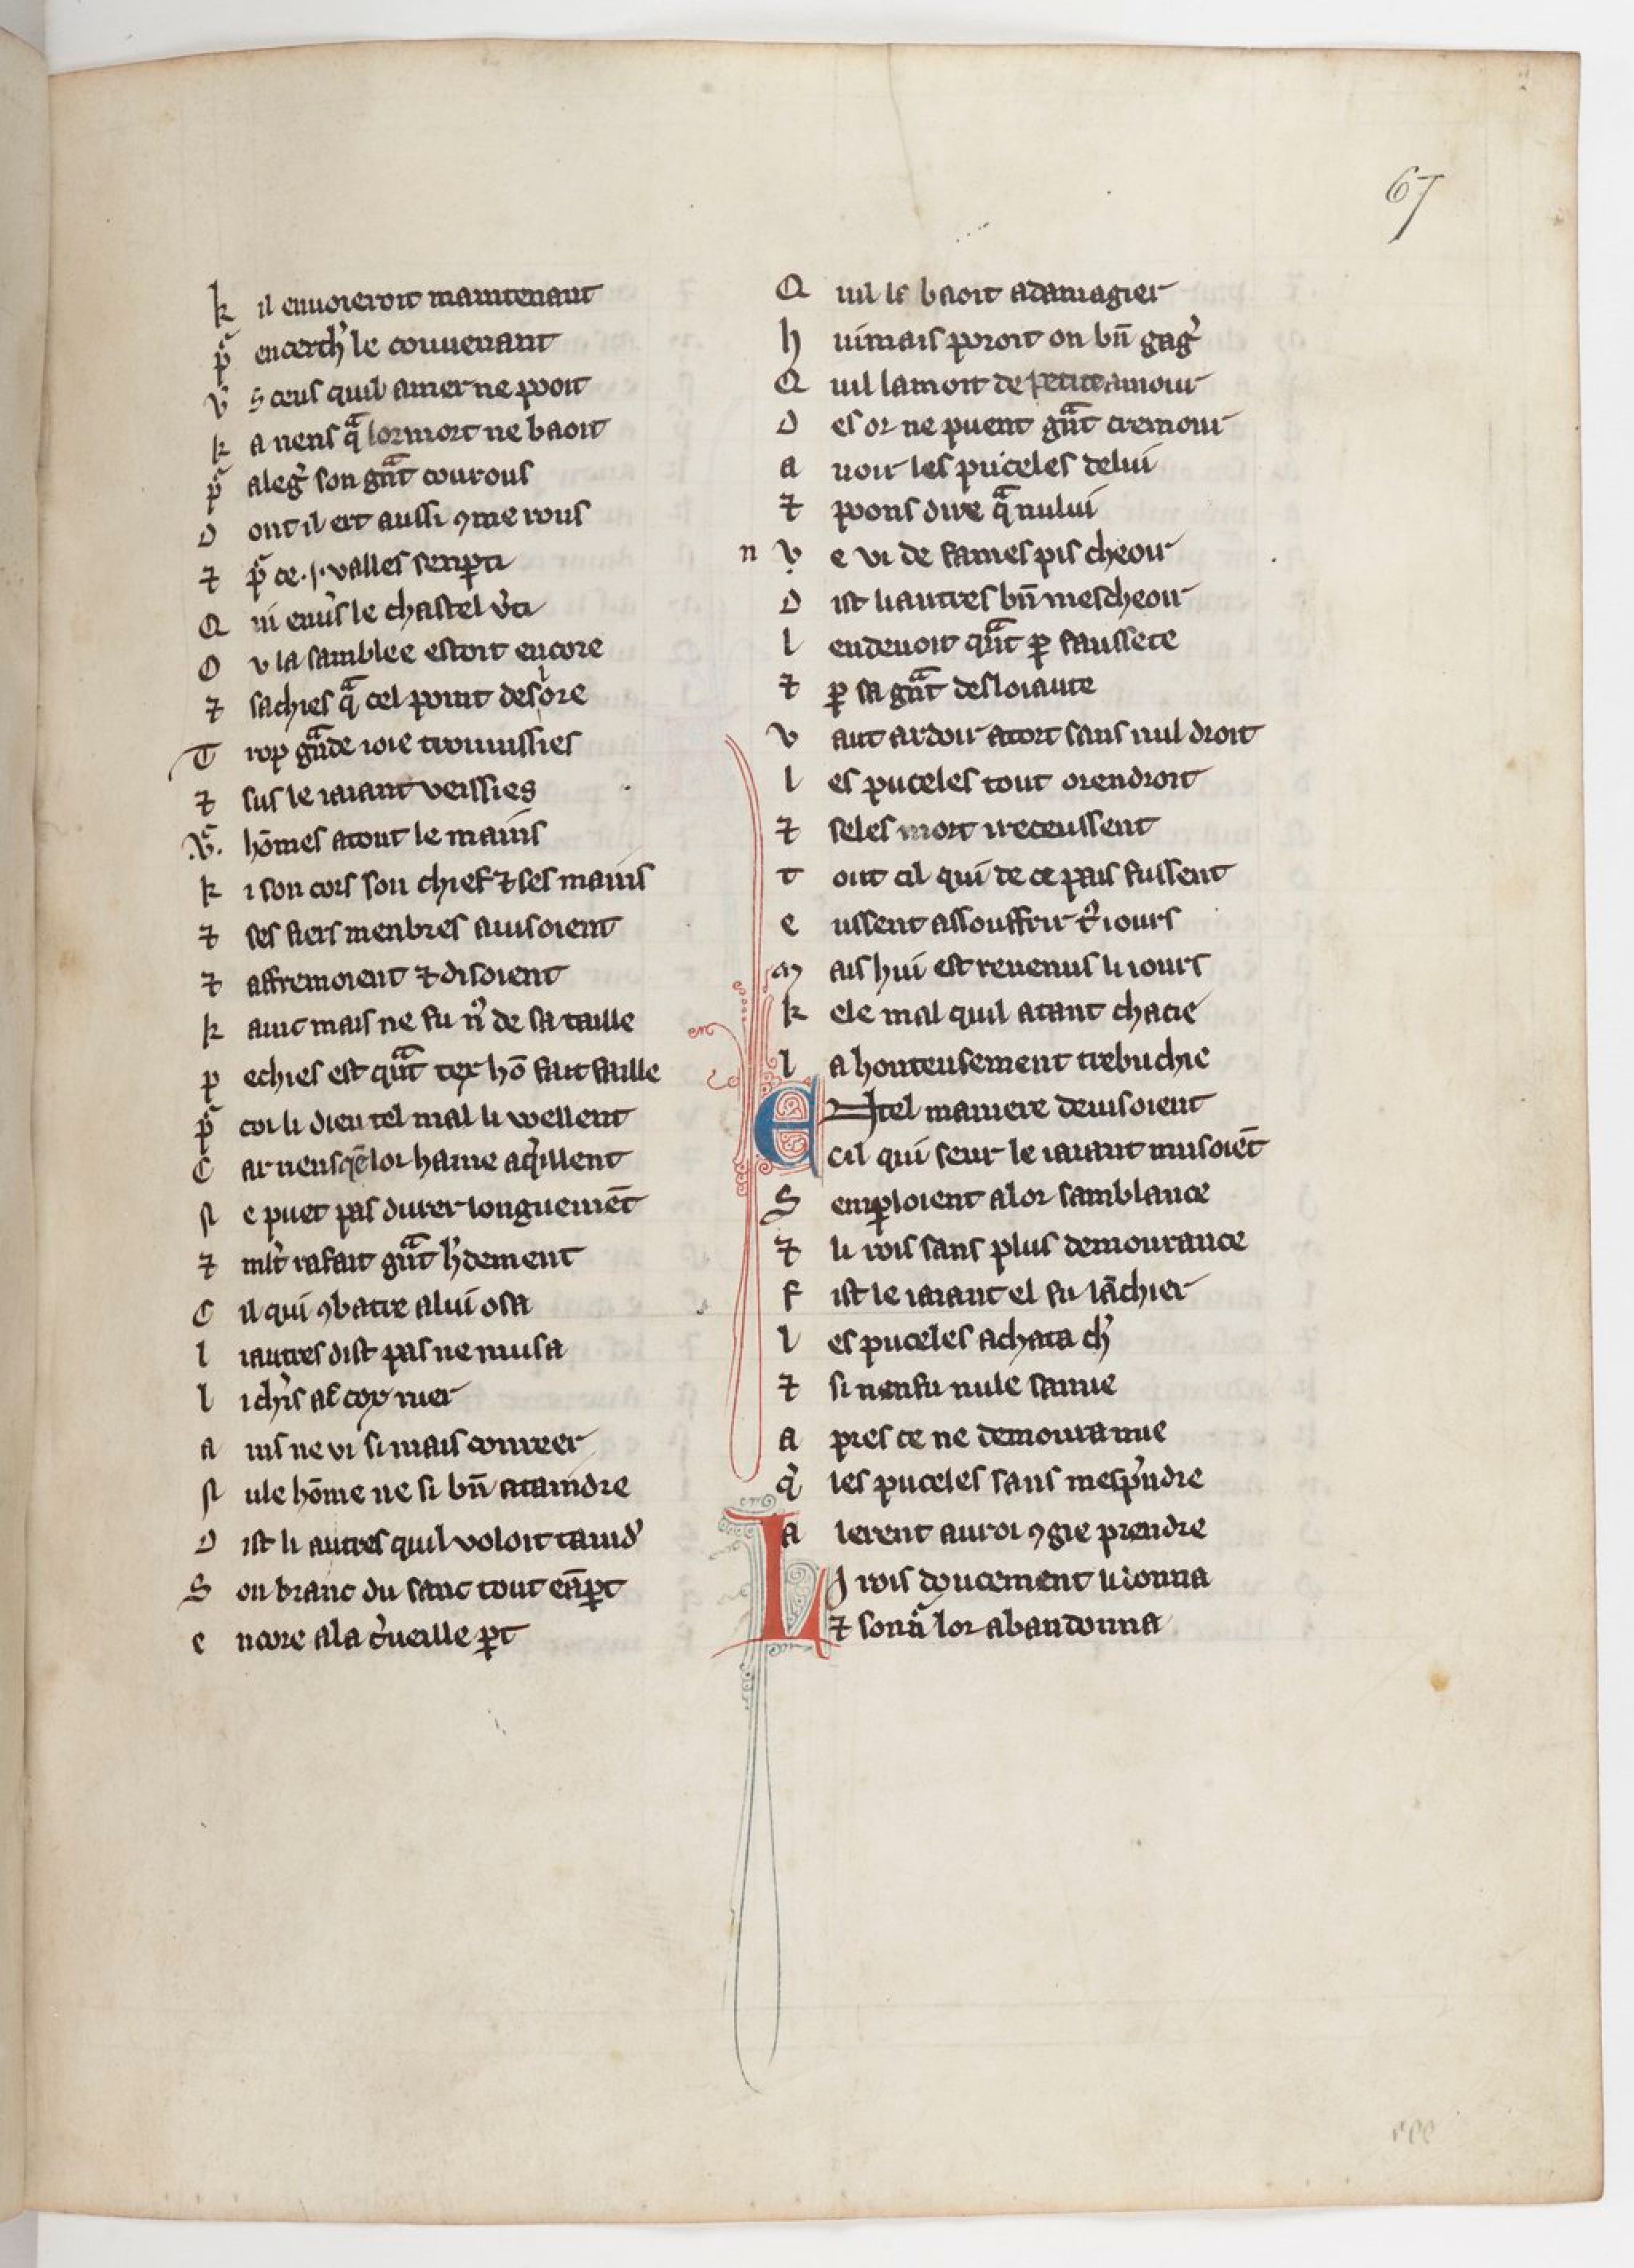 67
k il enuoieroit maintenant
p̾ encerch̾ le conuenant
v̾ s ceus quil amer ne pooit
k a nens q̃ lor mort ne baoit
p̾ aleg̾ son gñt courous
d ont il ert aussi ꝯme rous
⁊ p̾ ce .i. valles senꝑti
Q ui enu̾s le chastel v̾ti
O v la samblee estoit encore
⁊ sachies q̃ cel point desore
T rop gñde ioie trouuissies
⁊ sus le iaiant veissies
.v.c hõmes atout le mains
k i son cors son chief ⁊ ses mains
⁊ ses fiers menbres auisoient
⁊ affremoient ⁊ disoient
k ainc mais ne fu n̾ de sa taille
p echies est qñt tex hõ fait faille
p̾ coi li dieu tel mal li wellent
C ar nens qẽ lor haine aq̾illent
N e puet pas durer longuemẽt
⁊ ml̾t ra fait gñt h̾dement
C il qui ꝯbatre a lui osa
l i autres dist pas ne musa
l i ch̾rs as cox ruer
a ins ne vi si mais conreer
N ule hõme ne si bñ ataindre
D ist li autres quil voloit taind̾
S on branc du sanc tout eñꝑt
e ncore a la c̾ueille ꝑt
Q uil le baoit adamagier
h uimais poroit on bñ gag̾
Q uil lamoit de petite amour
D es or ne puent gñt cremour
a uoir les puceles de lui
⁊ poons dire q̃ nului
n v e vi de fames pis cheoir
D ist li autres bñ mescheoir
l en deuoit qñt ꝑ faussete
⁊ ꝑ sa gñt desloiaute
v aut ardoir a tort sans nul droit
l es puceles tout orendroit
⁊ seles mort i receussent
t out cil qui de ce pais fussent
e ussent assouffrir t̾ iours
M ais hui est reuenus li iours
k ele mal quil a tant chacie
l a honteusement trebuchie
E Ntel maniere deuisoient
cil qui seur le iaiant musoiẽt
S enploient a lor samblance
⁊ li rois sans plus demourance
f ist le iaiant el fu lãchier
l es puceles achata ch̾
⁊ si nen fu nule sauue
a pres ce ne demoura mie
q̾ les puceles sans mesp̾ndre
a lerent au roi ꝯgie prendre
L I rois doucement li donna
⁊ son a̾ lor abandonna